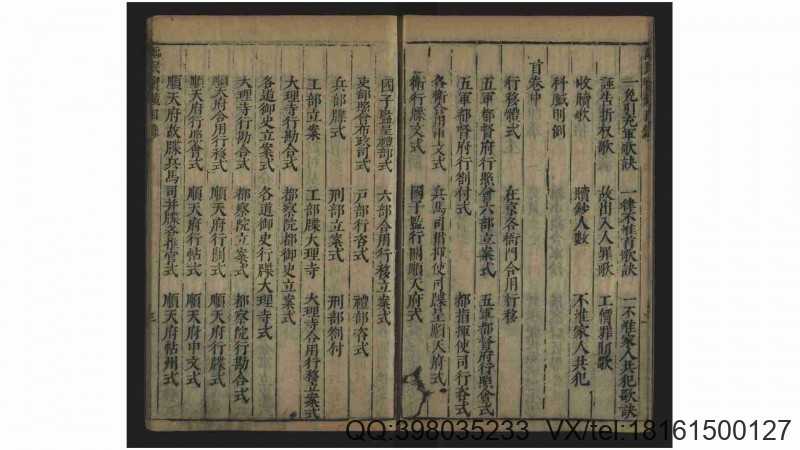 一免引充軍歌訣 一律不准首歌訣 一不准家人共犯歌訣
誣告折杖歌 故出入人罪歌 工價罪罰歌
收贖歌 贖鈔人數 不准家人共犯
科贓則例
首卷中
行移體式 在京各衙門合用行移
五軍都督府行照會六部立案式 五軍都督府行照會式
五軍都督府行劄付式 都指揮使司行咨式
各衛合用申文式 兵馬司指揮使司牒呈順天府式
衛行牒文式 國子監行關順天府式
國子監呈禮部式 六部合用行移立案式
吏部照會布政司式 戶部行咨式 禮部咨式
兵部牒式 刑部立案式 刑部劄付
工部立案 工部牒大理寺 大理寺合用行移立案式
大理寺行勘合式 都察院都御史立案式
各道御史立案式 各道御史行牒大理寺式
大理寺行勘合式 都察院立案式 都察院行勘合式
順天府合用行移式 順天府行劄式 順天府行牒式
順天府行照會式 順天府行帖式 順天府申文式
順天府故牒兵馬司并牒各推官式 順天府帖州式
QQ:398035233 VX/tel:18161500127